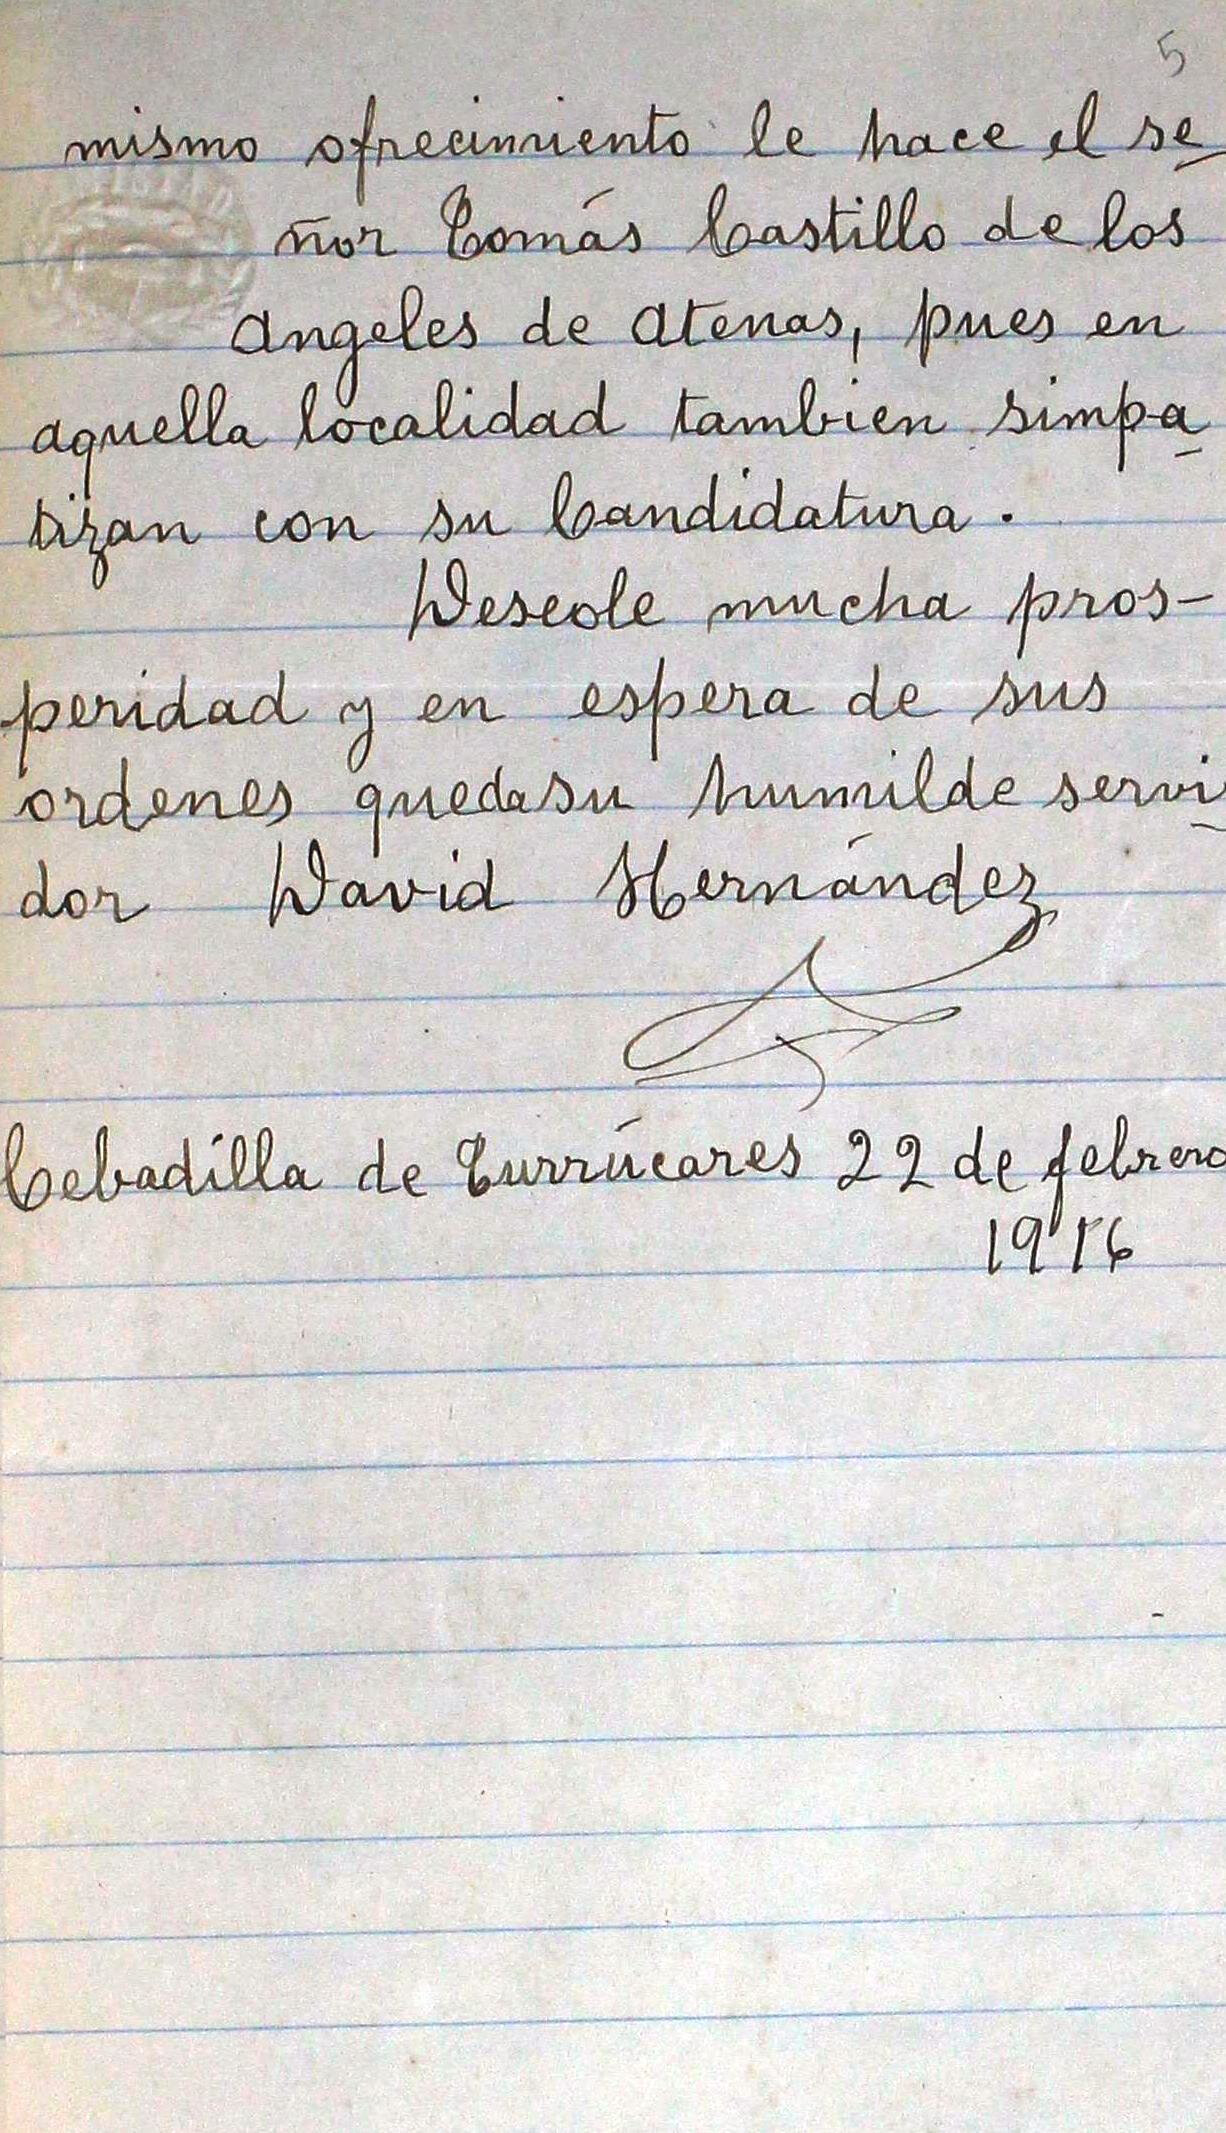 5
mismo ofrecimiento le hace el se-
ñor Tomás Castillo de los
Angeles de Atenas, pues en
aquella localidad tambien simpa-
tizan con su Candidatura.
Deseole mucha pros-
peridad y en espera de sus
ordenes queda su humilde servi-
dor David Hernández
Cebadilla de Turrúcares 22 de febrero
1916